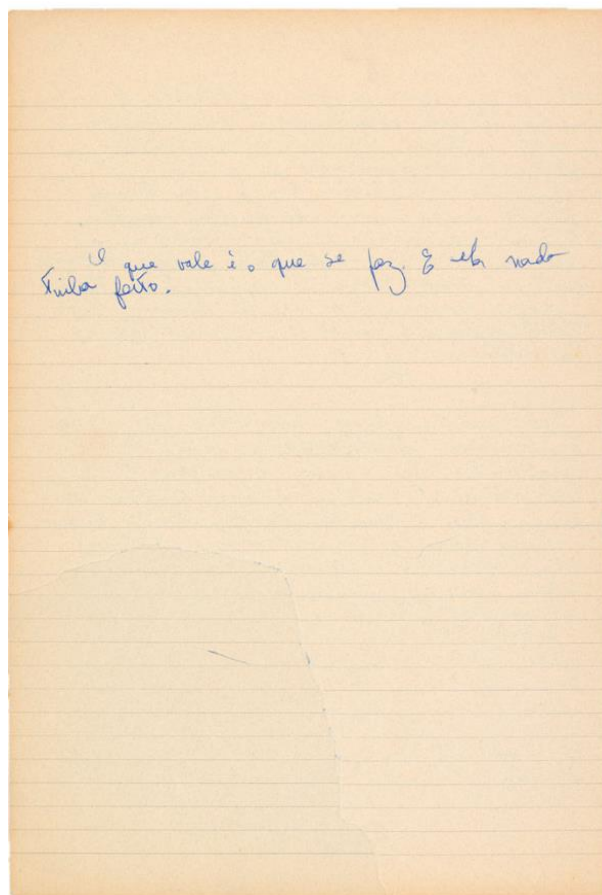 O que vale é o que se faz. E ela nada
tinha feito.